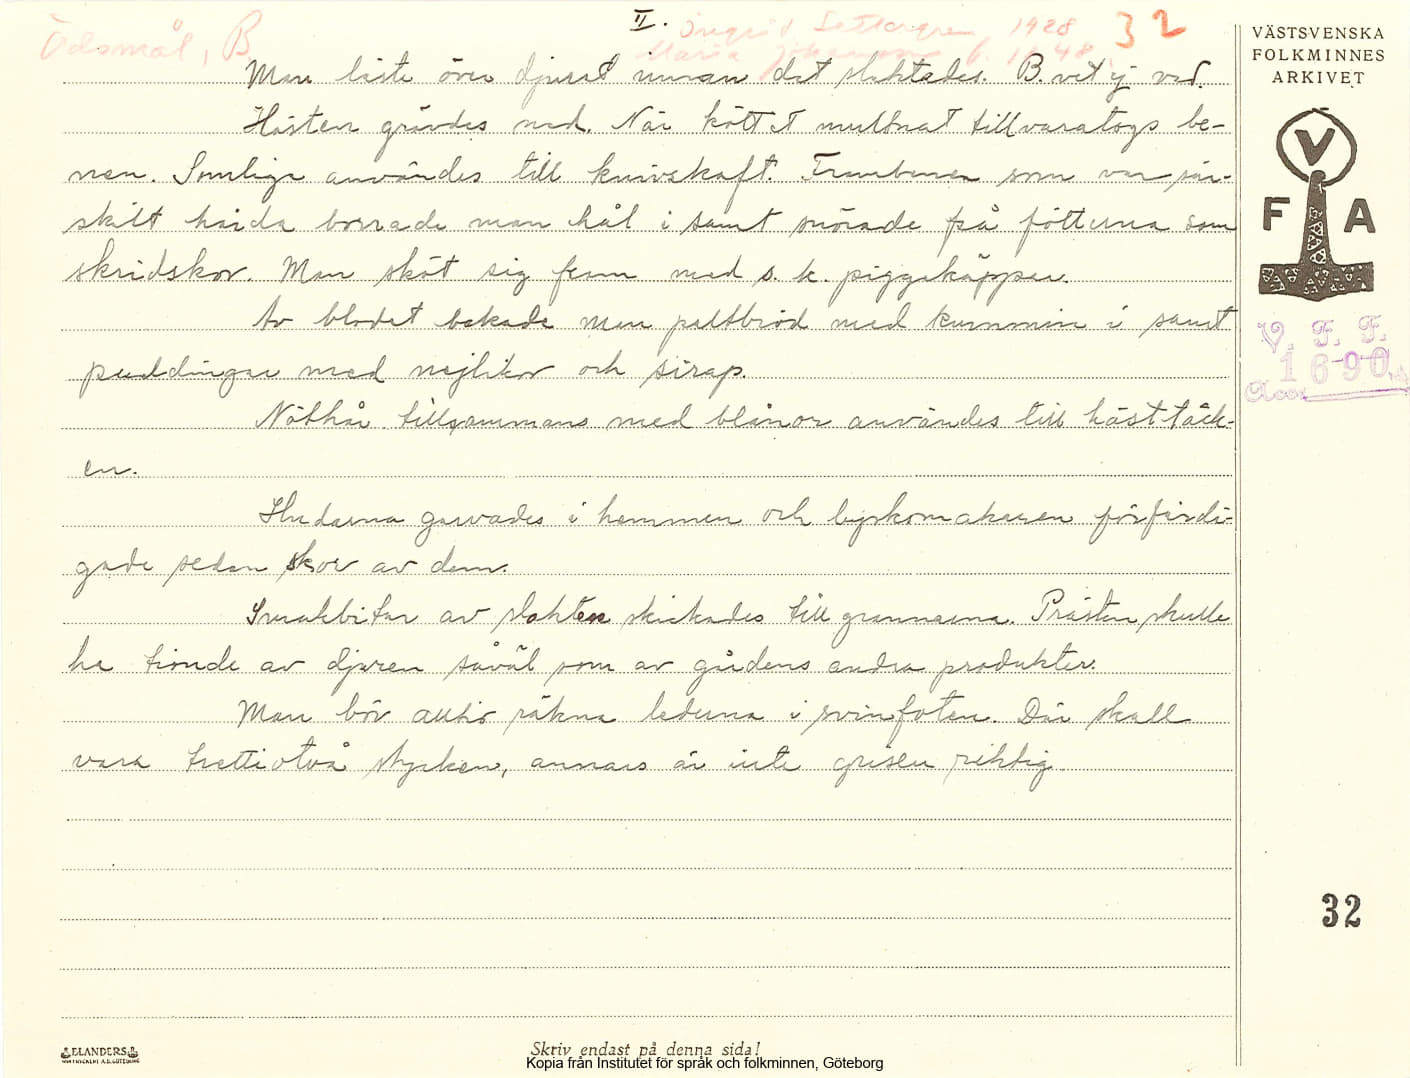 II.
Ödsmål, B
Ingrid Settergren 1928
32
Maria Johansson f. 1848.
VÄSTSVENSKA
FOLKMINNES
ARKIVET
V
F A
V. F. F.
1690
Acc:
Man läste över djuret innan det slaktades. B. vet ej vad.
Hästen grävdes ned. När köttet multnat tillvaratogs be-
nen. Somliga användes till knivskaft. Frambenen som var sär-
skilt hårda borrade man hål i samt snörade på fötterna som
skridskor. Man sköt sig fram med s. k. piggekäppar.
Av blodet bakade man paltbröd med kummin i samt
puddingar med nejlikor och sirap.
Nöthår tillsammans med blånor användes till hästtäck-
en.
Hudarna garvades i hemmen och byskomakaren förfärdi-
gade sedan skor av dem.
Smakbitar av slakten skickades till grannarna. Prästen skulle
ha tionde av djuren såväl som av gårdens andra produkter.
Man bör alltid räkna lederna i svinfoten. Där skall
vara trettiotvå stycken, annars är inte grisen riktig
32
ELANDERS
Skriv endast på denna sida!
Kopia från Institutet för språk och folkminnen, Göteborg